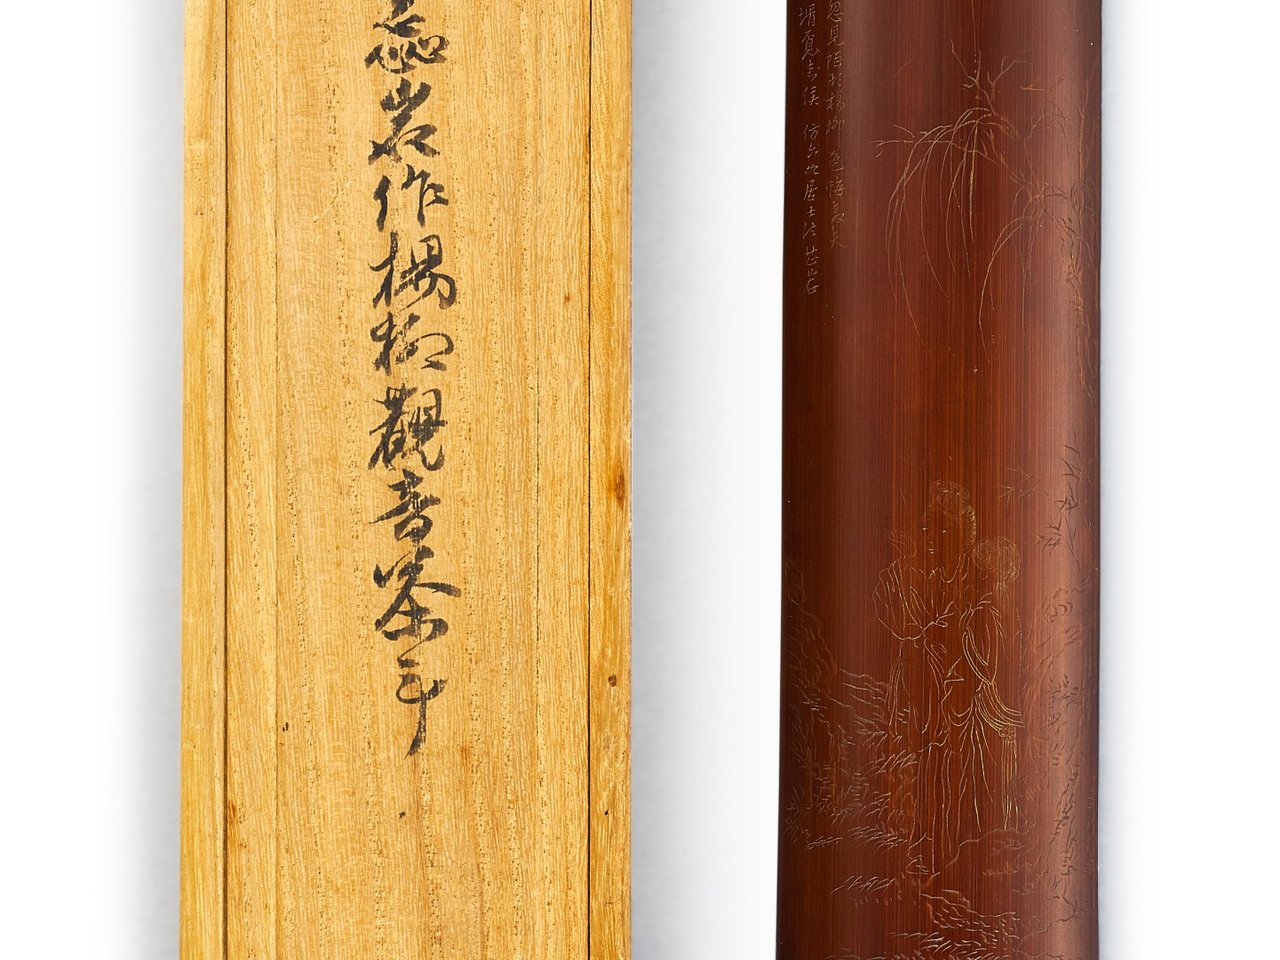 蕊岩作楊柳觀音茶
忽見陌頭楊柳色悔教夫
壻覓封侯 仿六如居士法 芷岩